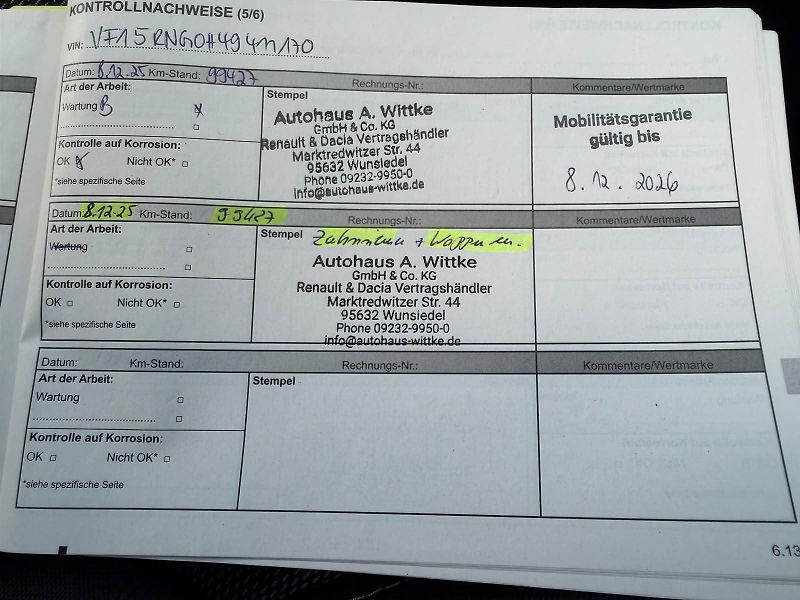 KONTROLLNACHWEISE (5/6)
VIN:
Datum: 8.12.25 Km-Stand: 99427 Rechnungs-Nr.: Kommentare/Wertmarke
Art der Arbeit:
Wartung B
Kontrolle auf Korrosion:
OK Nicht OK*
*siehe spezifische Seite
Stempel
Autohaus A. Wittke
GmbH & Co. KG
Renault & Dacia Vertragshändler
Marktredwitzer Str. 44
95632 Wunsiedel
Phone 09232-9950-0
info@autohaus-wittke.de
Mobilitätsgarantie
gültig bis
8.12.2026
Datum: 8.12.25 Km-Stand: 99427 Rechnungs-Nr.: Kommentare/Wertmarke
Art der Arbeit:
Wartung
Kontrolle auf Korrosion:
OK Nicht OK*
*siehe spezifische Seite
Stempel Zahnriemen +
Autohaus A. Wittke
GmbH & Co. KG
Renault & Dacia Vertragshändler
Marktredwitzer Str. 44
95632 Wunsiedel
Phone 09232-9950-0
info@autohaus-wittke.de
Datum: Km-Stand: Rechnungs-Nr.: Kommentare/Wertmarke
Art der Arbeit:
Wartung
Kontrolle auf Korrosion:
OK Nicht OK*
*siehe spezifische Seite
Stempel
6.13